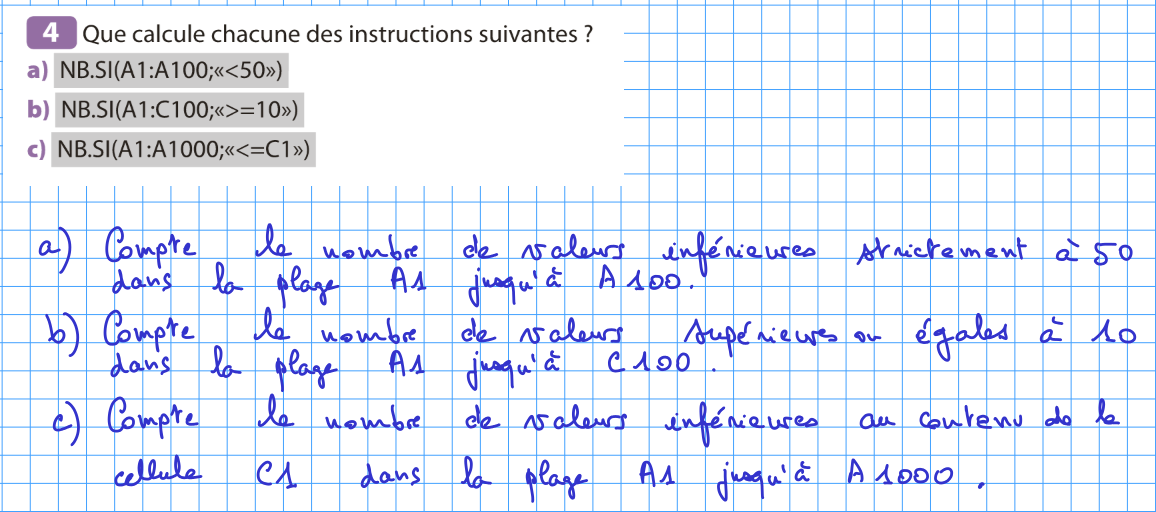 4 Que calcule chacune des instructions suivantes ?
a) NB.SI(A1:A100;«<50»)
b) NB.SI(A1:C100;«>=10»)
c) NB.SI(A1:A1000;«<=C1»)
a) Compte le nombre de valeurs inférieures strictement à 50
dans la plage A1 jusqu'à A100.
b) Compte le nombre de valeurs supérieures ou égales à 10
dans la plage A1 jusqu'à C100.
c) Compte le nombre de valeurs inférieures au contenu de la
cellule C1 dans la plage A1 jusqu'à A1000.